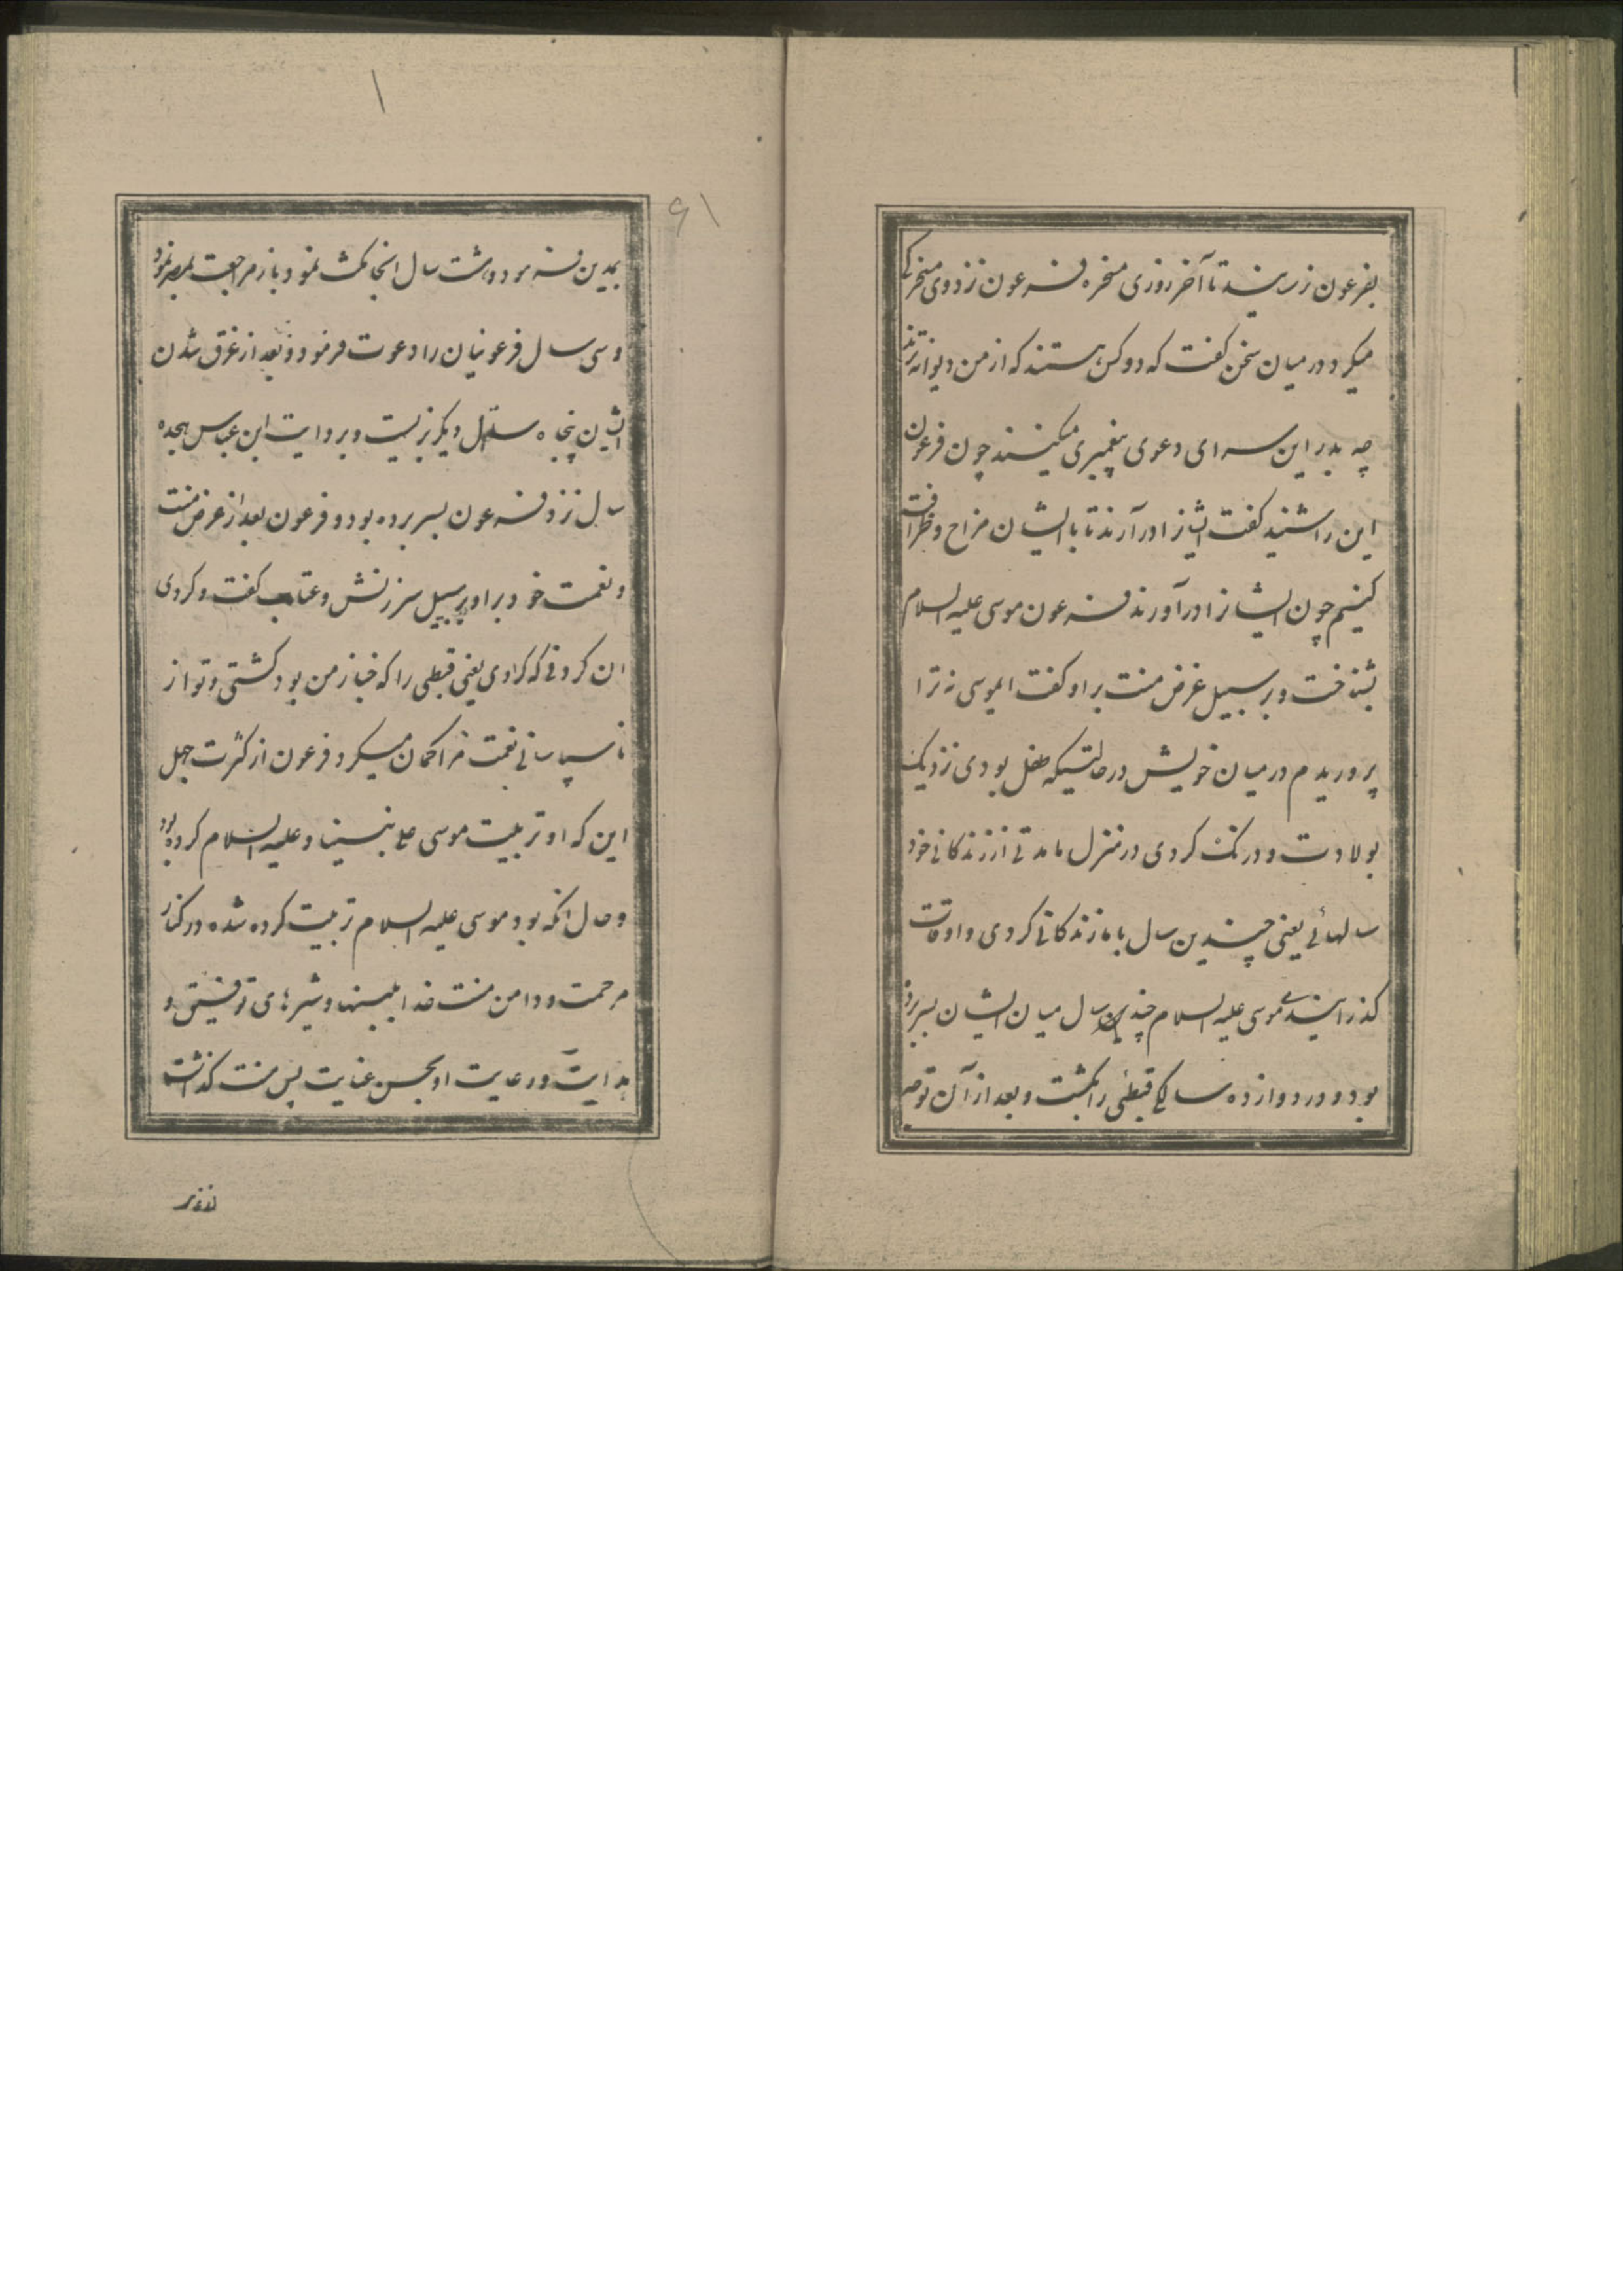 بفرعون نرسانیدند تا آخر روزی مسخره فرعون نزد وی مسخرکی
میکرد در میان سخن گفت که دو کس هستند که از من دیوانه ترند
چه بدر این سرای دعوی پیغمبری میکینند چون فرعون
این را شنید گفت ایشانرا درآرند تا با ایشان مزاح و ظرافت
کنیم چون ایشانرا درآوردند فرعون موسی علیه السلام
بشناخت و بر سبیل غرض منت بر او گفت ایموسی نه ترا
پروریدم در میان خویش در حالتیکه طفل بودی نزدیک
بولادت و درنک کردی در منزل ما مدتی از زندکانی خود
سالهائی یعنی چندین سال با ما زندکانی کردی و اوقات
کذرانیدی موسی علیه السلام چندین سال میان ایشان بسر برده
بود و در دوازده سالکی قبطئی را بکشت و بعد از آن توجه
۹۱
بمدین فرمود و هشت سال انجا مکث نمود و باز مراجعت بمصر نمود
و سی سال فرعونیان را دعوت فرمود و بعد از غرق شدن
ایشان پنجاه سال دیکر بزیست و بروایت ابن عباس هجده
سال نزد فرعون بسر برده بود و فرعون بعد از غرض منت
و نعمت خود بر او بر سبیل سرزنش و عتاب گفت و کردی
ان کردنی که کردی یعنی قبطی را که خباز من بود کشتی و تو از
ناسپاسانی نعمت مرا کمان میکرد فرعون از کثرت جهل
این که او تربیت موسی علی نبینا و علیه السلام کرده بود
و حال انکه بود موسی علیه السلام تربیت کرده شده در کنار
مرحمت و دامن منت خدا بلبنها و شیرهای توفیق و
هدایت و رعایت او بحسن عنایت پس منت کذاشت